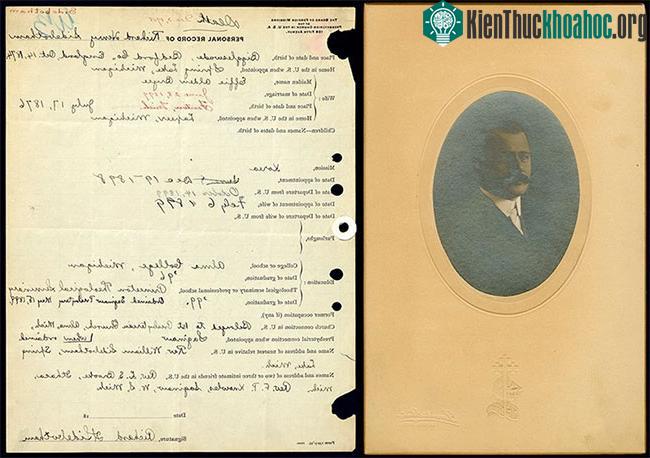 KienThucKhoahoc.org
Sidebotham
Death
THE BOARD FOREIGN MISSIONS
OF THE
PRESBYTERIAN CHURCH IN THE U. S. A.
156 FIFTH AVENUE
PERSONAL RECORD OF Richard Henry Sidebotham
Place and date of birth Biggleswade, Bedford Co. England Oct. 14, 1874
Home in the U. S. when appointed Spring Lake, Michigan
Wife: Maiden name Effie Alden Bryce
Date of marriage June 28, 1899
Place and date of birth July 17, 1876
Home in U. S. when appointed Lapeer, Michigan
Children—Names and dates of birth
Mission, Korea
Date of appointment Dec 19 - 1898
Date of departure from U. S.
Date of appointment of wife Feb, 6 1899
Date of departure of wife from U. S.
Furloughs,
Education: College or school Alma College, Michigan
Date of graduation '96
Theological seminary or professional school, Princeton Theological Seminary
Date of graduation, '99.
Former occupation (if any),
Church connection in U. S. Belongs to 1st Presbyterian Church, Alma, Mich.
Presbyterial connection Saginaw when ordained
Name and address of nearest relation in U. S. Rev. William Sidebotham, Spring
Lake, Mich.
Names and address of two or three intimate friends in the U. S. Rev. L. S. Brooke, Ithaca
Mich. Rev. F. P. Knowles, Saginaw, W. S. Mich
Date 18
Signature, Richard H Sidebotham